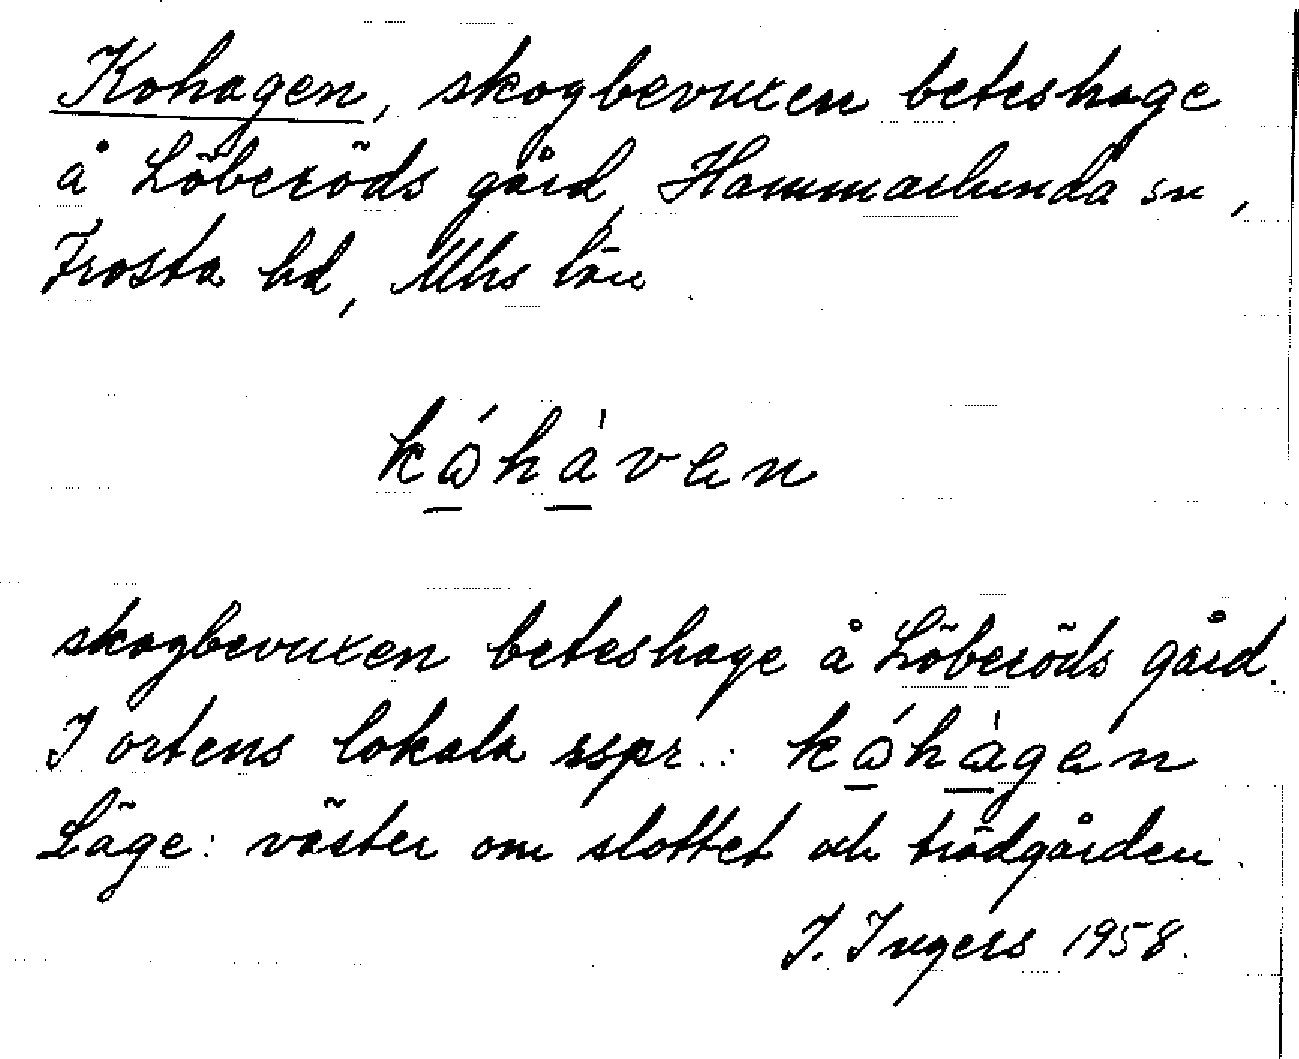 Kohagen, skogbevuxen beteshage
å Löberöds gård, Hammarlunda sn,
Frosta hd, Mhs län
kóhàven
skogbevuxen beteshage å Löberöds gård.
I ortens lokala rspr.: kóhàgen
Läge: väster om slottet och trädgården.
I. Ingers 1958.